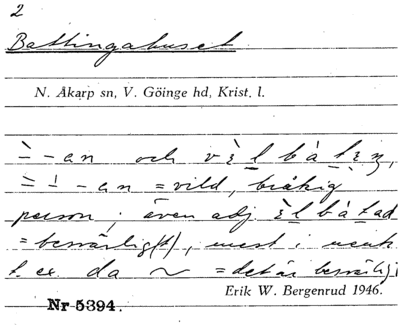 2
Battingahuset
N. Åkarp sn, V. Göinge hd, Krist. l.
– -an och
– -an = vild, bråkig
person; även adj
= besvärlig(t), mest i neutr
t. ex. da ~ = det är besvärligt
Erik W. Bergenrud 1946.
Nr 5394.